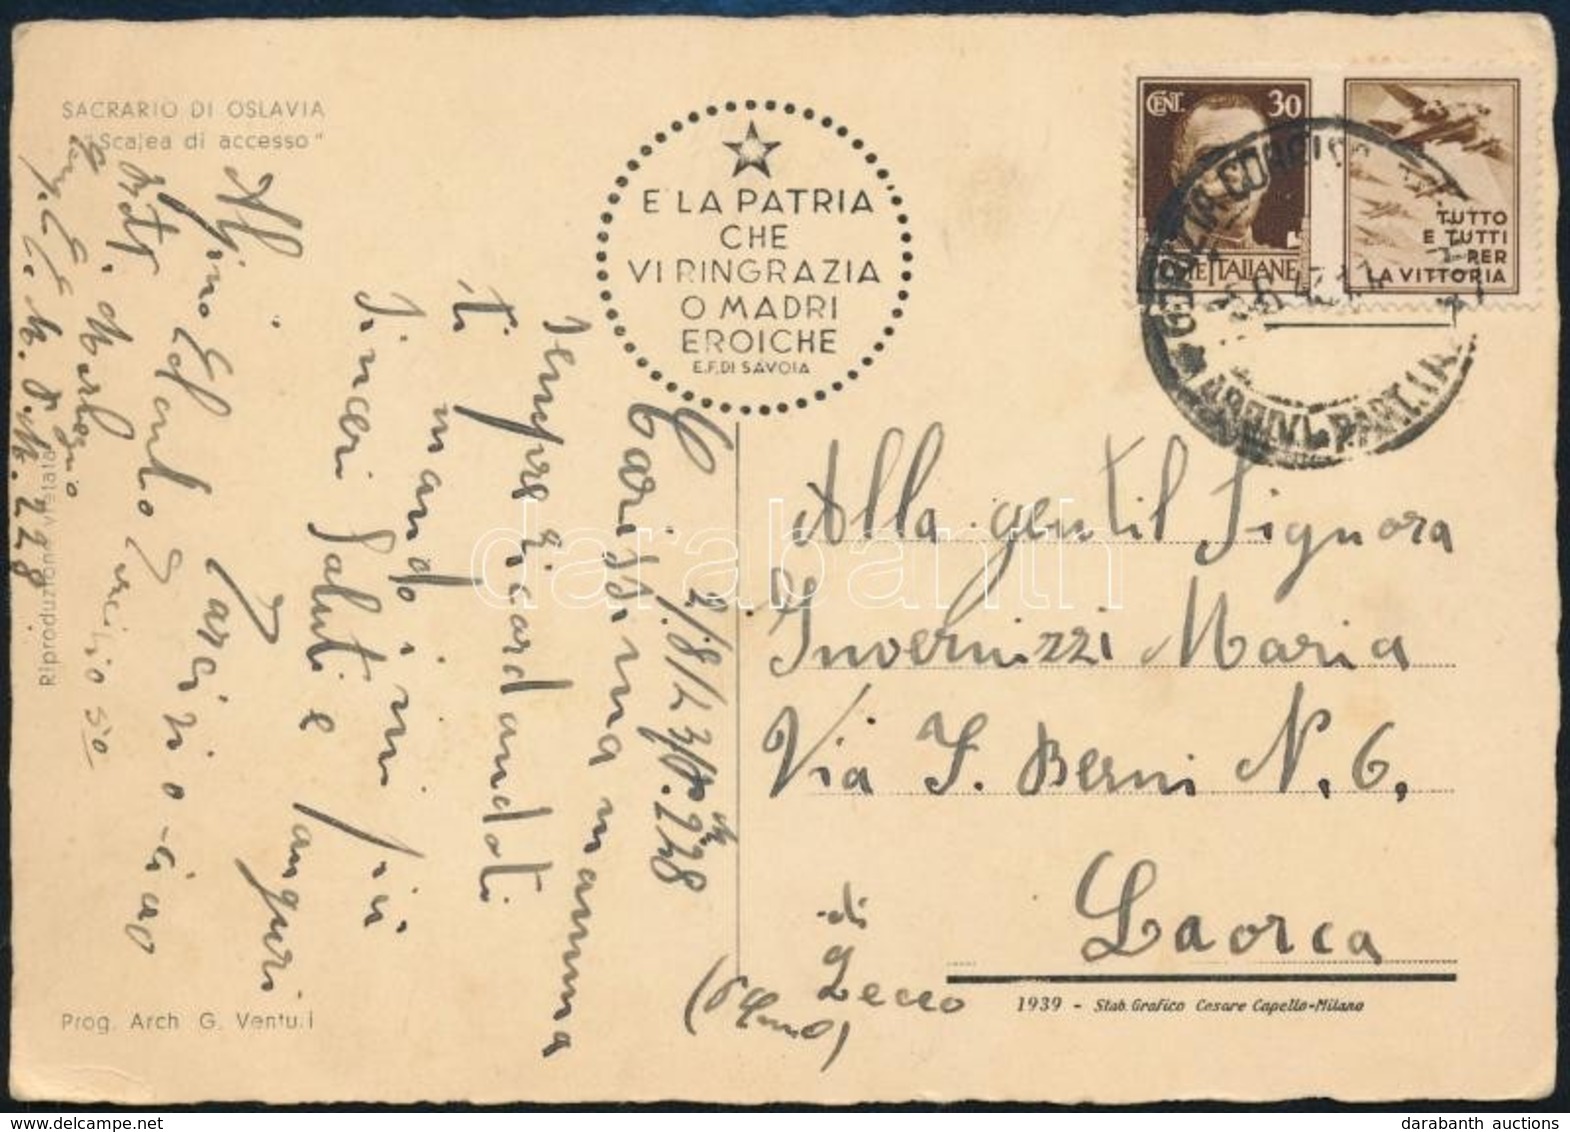 SACRARIO DI OSLAVIA
"Scalea di accesso"
E LA PATRIA
CHE
VI RINGRAZIA
O MADRI
EROICHE
E.F. DI SAVOIA
CENT. 30
POSTE ITALIANE
TUTTO
E TUTTI
PER
LA VITTORIA
GORIZIA
ARRIVI PART.
2/8/43 P.M. 228
Carissima mamma
sempre ricordandoti
ti mando i miei più
sinceri saluti e
auguri
Narciso - ciao
P.M. 228
Alla gentil Signora
Invernizzi Maria
Via F. Berni N. 6.
Laorca
di
Lecco
(Como)
Riproduzione vietata
Prog. Arch G. Venturi
1939 - Stab. Grafico Cesare Capello-Milano
darabanth
darabanth auctions